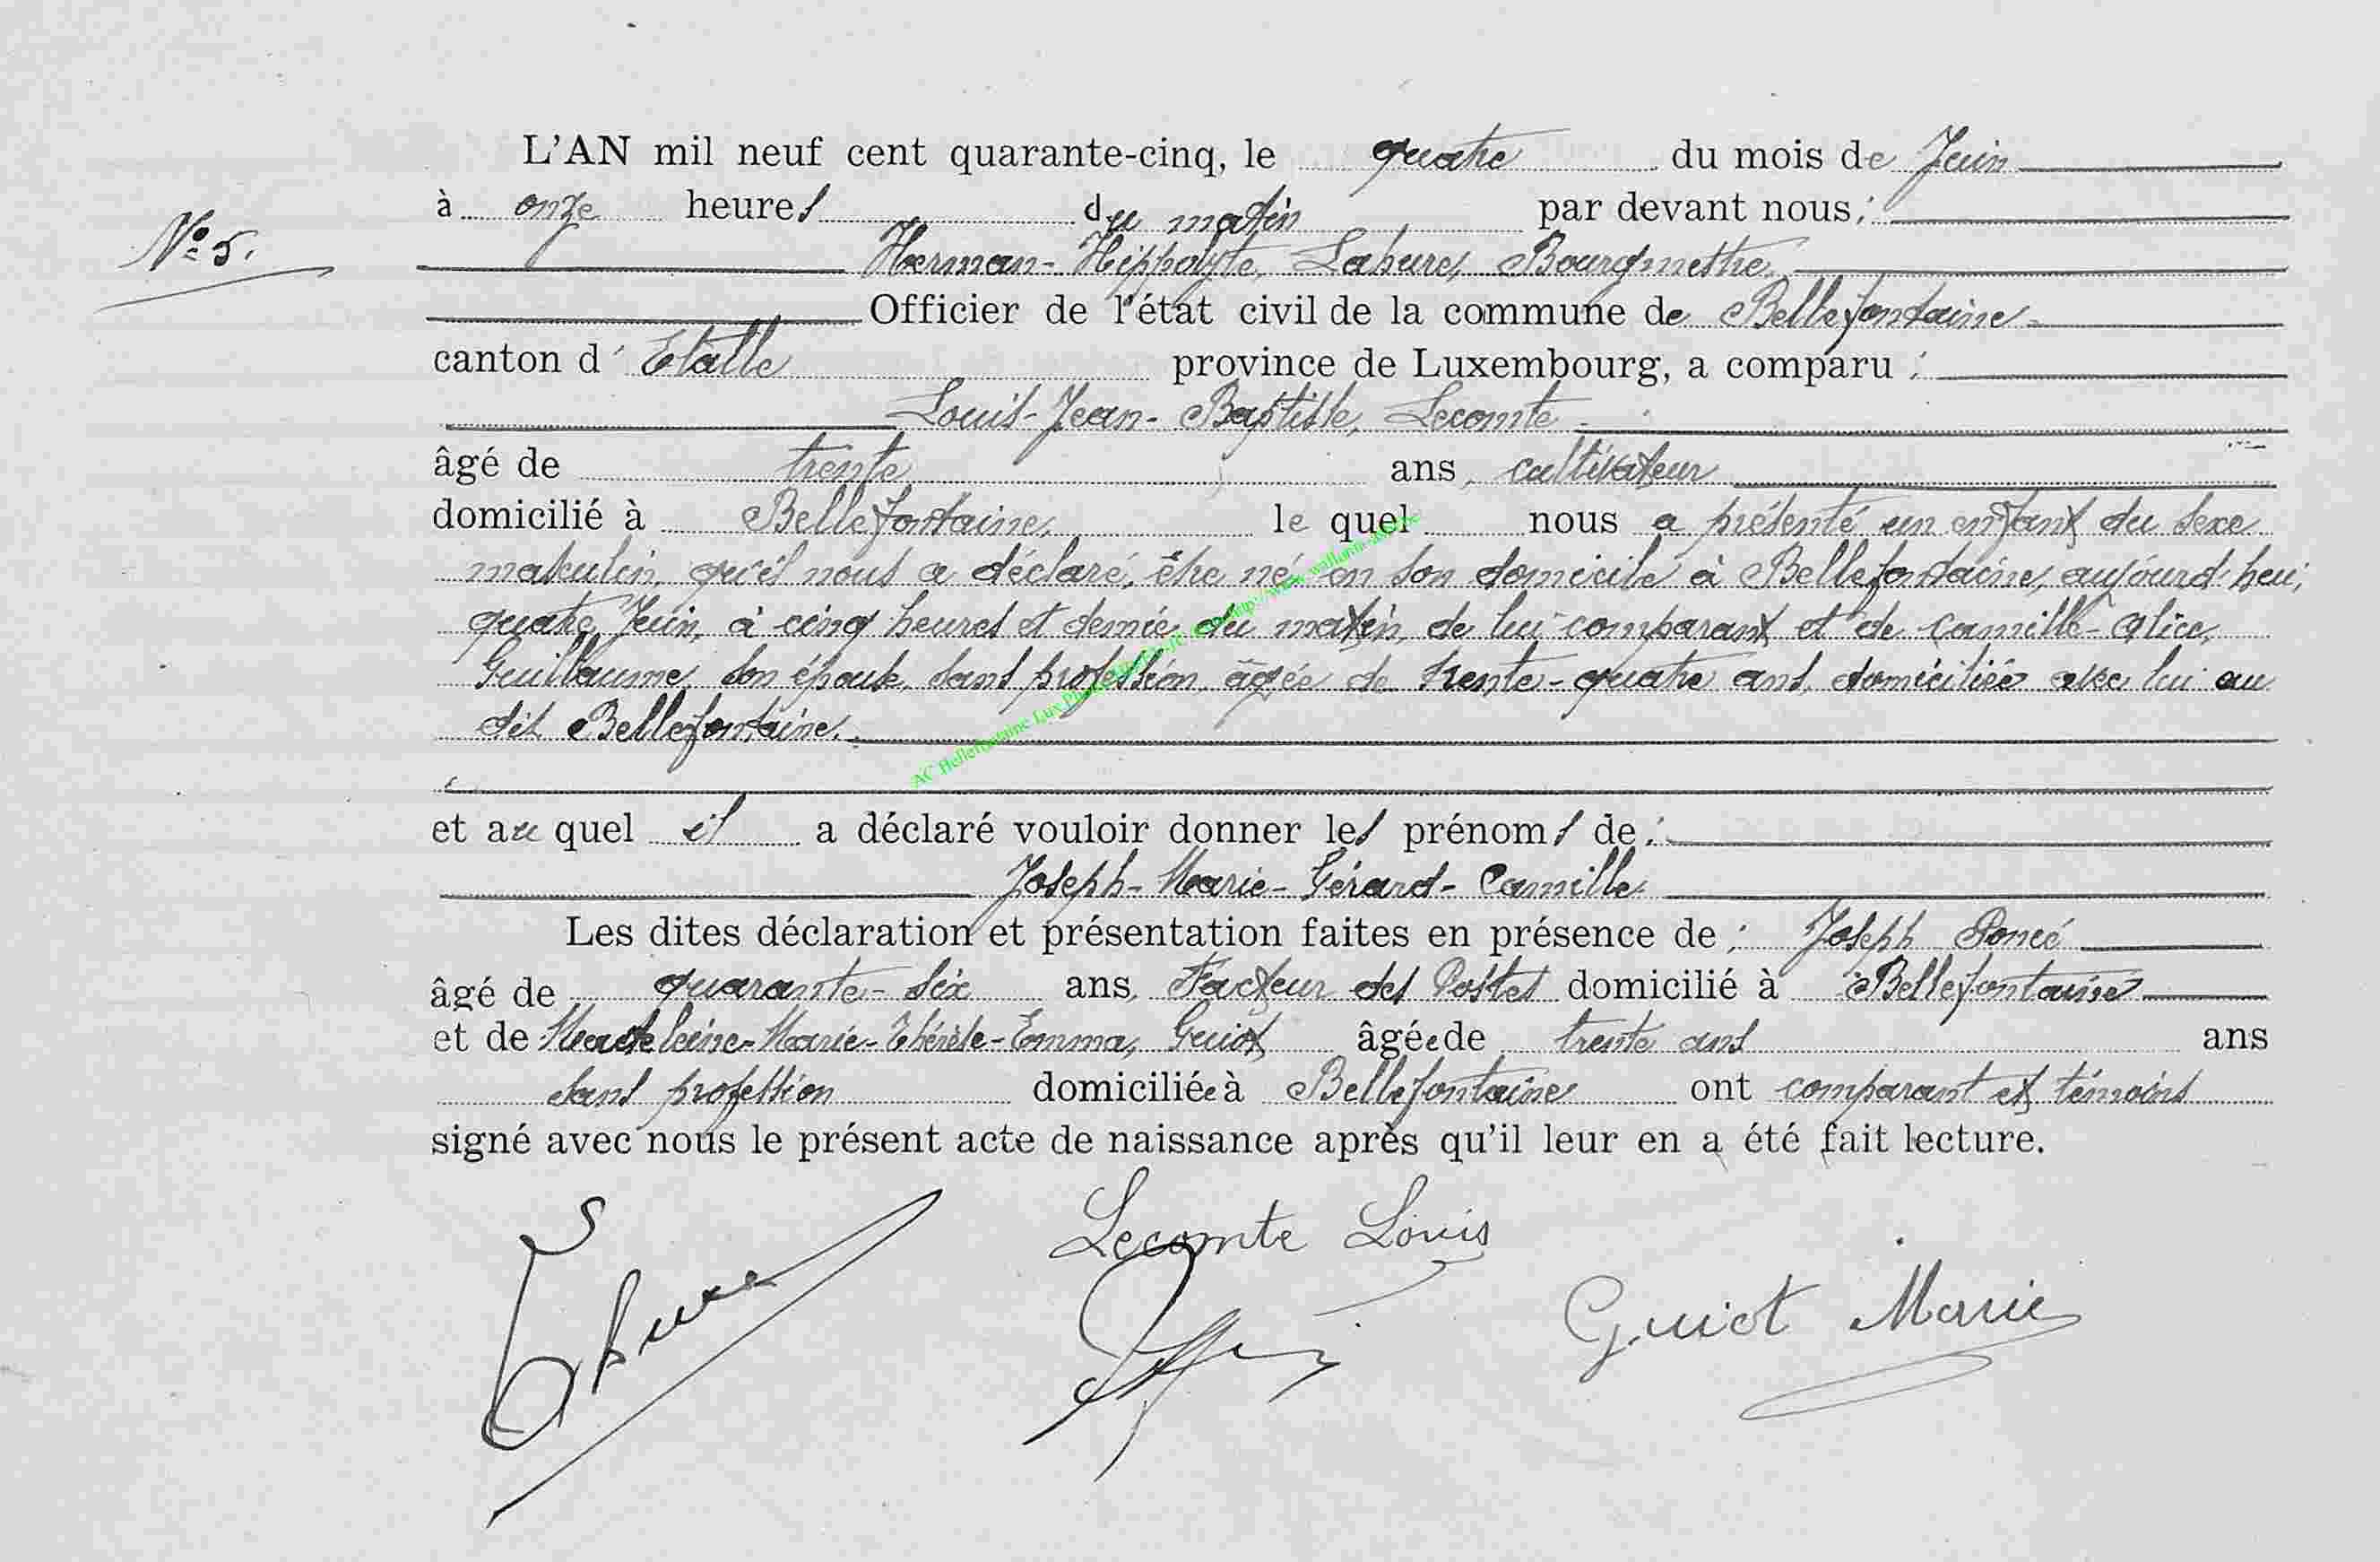 L'AN mil neuf cent quarante-cinq, le quatre du mois de Juin
à onze heures du matin par devant nous :
N° 5.
Herman-Hippolyte, Lahure, Bourgmestre
Officier de l'état civil de la commune de Bellefontaine
canton d'Etalle province de Luxembourg, a comparu :
Louis-Jean-Baptiste, Lecomte
âgé de trente ans, cultivateur
domicilié à Bellefontaine, le quel nous a présenté un enfant du sexe
masculin, qu'il nous a déclaré, être né en son domicile à Bellefontaine, aujourd'hui,
quatre Juin, à cinq heures et demie du matin, de lui comparant et de Camille-Alice,
Guillaume, son épouse, sans profession, âgée de trente-quatre ans, domiciliée avec lui au
dit Bellefontaine.
et au quel il a déclaré vouloir donner les prénoms de :
Joseph-Marie-Gérard-Camille
Les dites déclaration et présentation faites en présence de : Joseph Poncé
âgé de quarante-six ans, Facteur des Postes domicilié à Bellefontaine
et de Madeleine-Marie-Thérèse-Emma, Guiot âgée de trente ans ans
sans profession domiciliée à Bellefontaine ont comparant et témoins
signé avec nous le présent acte de naissance après qu'il leur en a été fait lecture.
Lecomte Louis
Guiot Marie